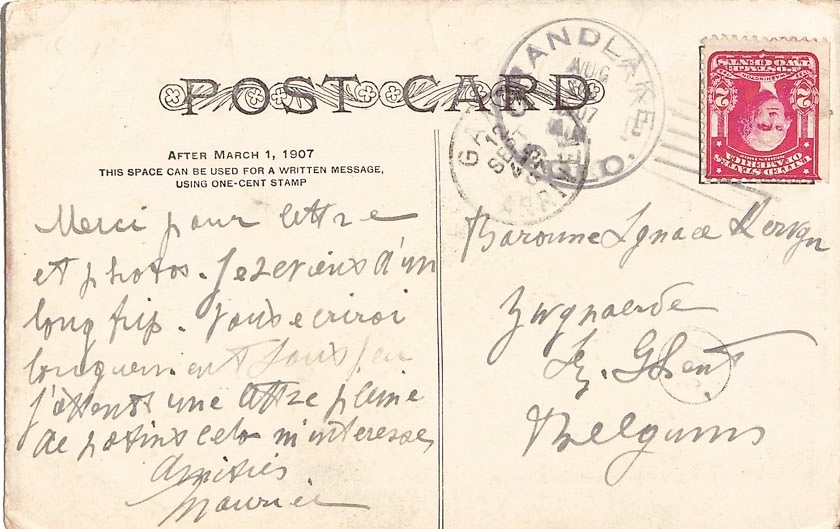 POST CARD
AFTER MARCH 1, 1907
THIS SPACE CAN BE USED FOR A WRITTEN MESSAGE,
USING ONE-CENT STAMP
GRANDLAKE,
AUG
07
Merci pour lettre
et photos. Je reviens d'un
long trip. Vous ecrirai
longuement sous peu
j'attends une lettre pleine
de potins cela m'interesse
Amitiés
Maurice
Baronne Ignace Kervyn
Zwynaerde
Lz. Ghent
Belgium
UNITED STATES
OF AMERICA
2 2
POSTAGE
TWO CENTS